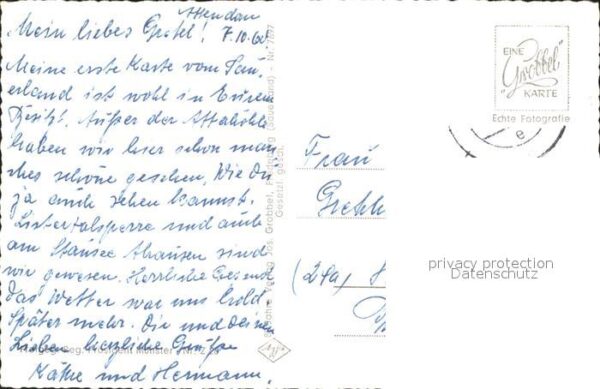 Attendorn
Mein liebes Gretel! 7.10.60
Meine erste Karte vom Sau-
erland ist wohl in Eurem
Besitz! Außer der Attahöhle
haben wir hier schon man-
ches schöne gesehen, wie Du
ja auch sehen kannst.
Listertalsperre und auch
am Stausee Ahausen sind
wir gewesen. Herrliche Gegend
das Wetter war uns hold
Später mehr. Dir und deinen
Lieben herzliche Grüße
Käthe und Hermann
Jos. Grobbel, Fredeburg (Sauerland) Nr.
Gesetzl. gesch.
EINE
"Grobbel"
KARTE
Echte Fotografie
e
Frau
(24a)
privacy protection
Datenschutz